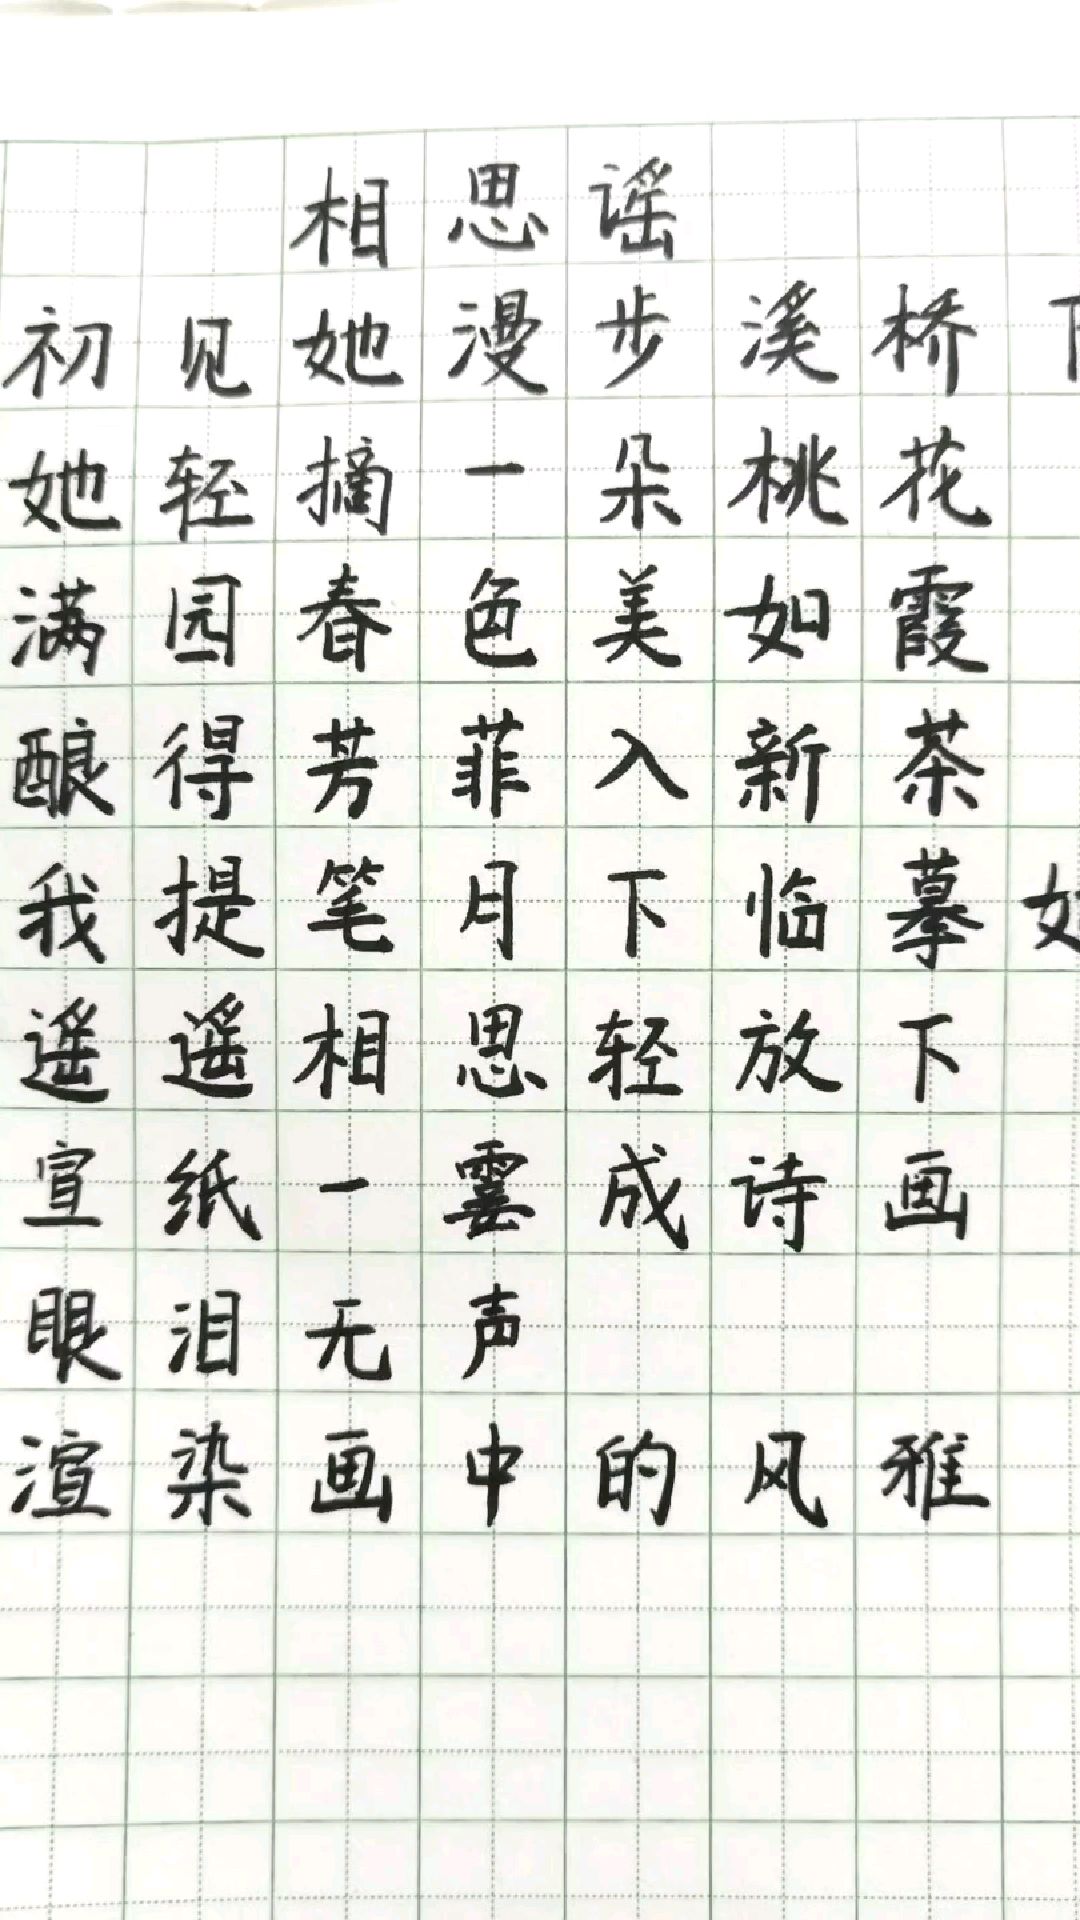 相思谣
初见她漫步溪桥下
她轻摘一朵桃花
满园春色美如霞
酿得芳菲入新茶
我提笔月下临摹
遥遥相思轻放下
宣纸一霎成诗画
眼泪无声
渲染画中的风雅